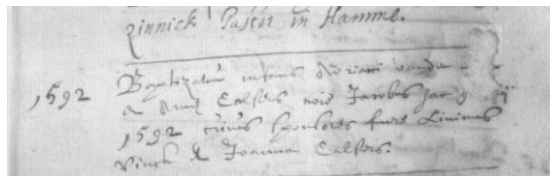 zinnick Pastor in Hamme.
1592 Baptizatus infans Adriani vande
& Calsters noie Jacobus hac 9
1592 cuius sponsores fuere Livinus
Vinck & Joanna Calsters.